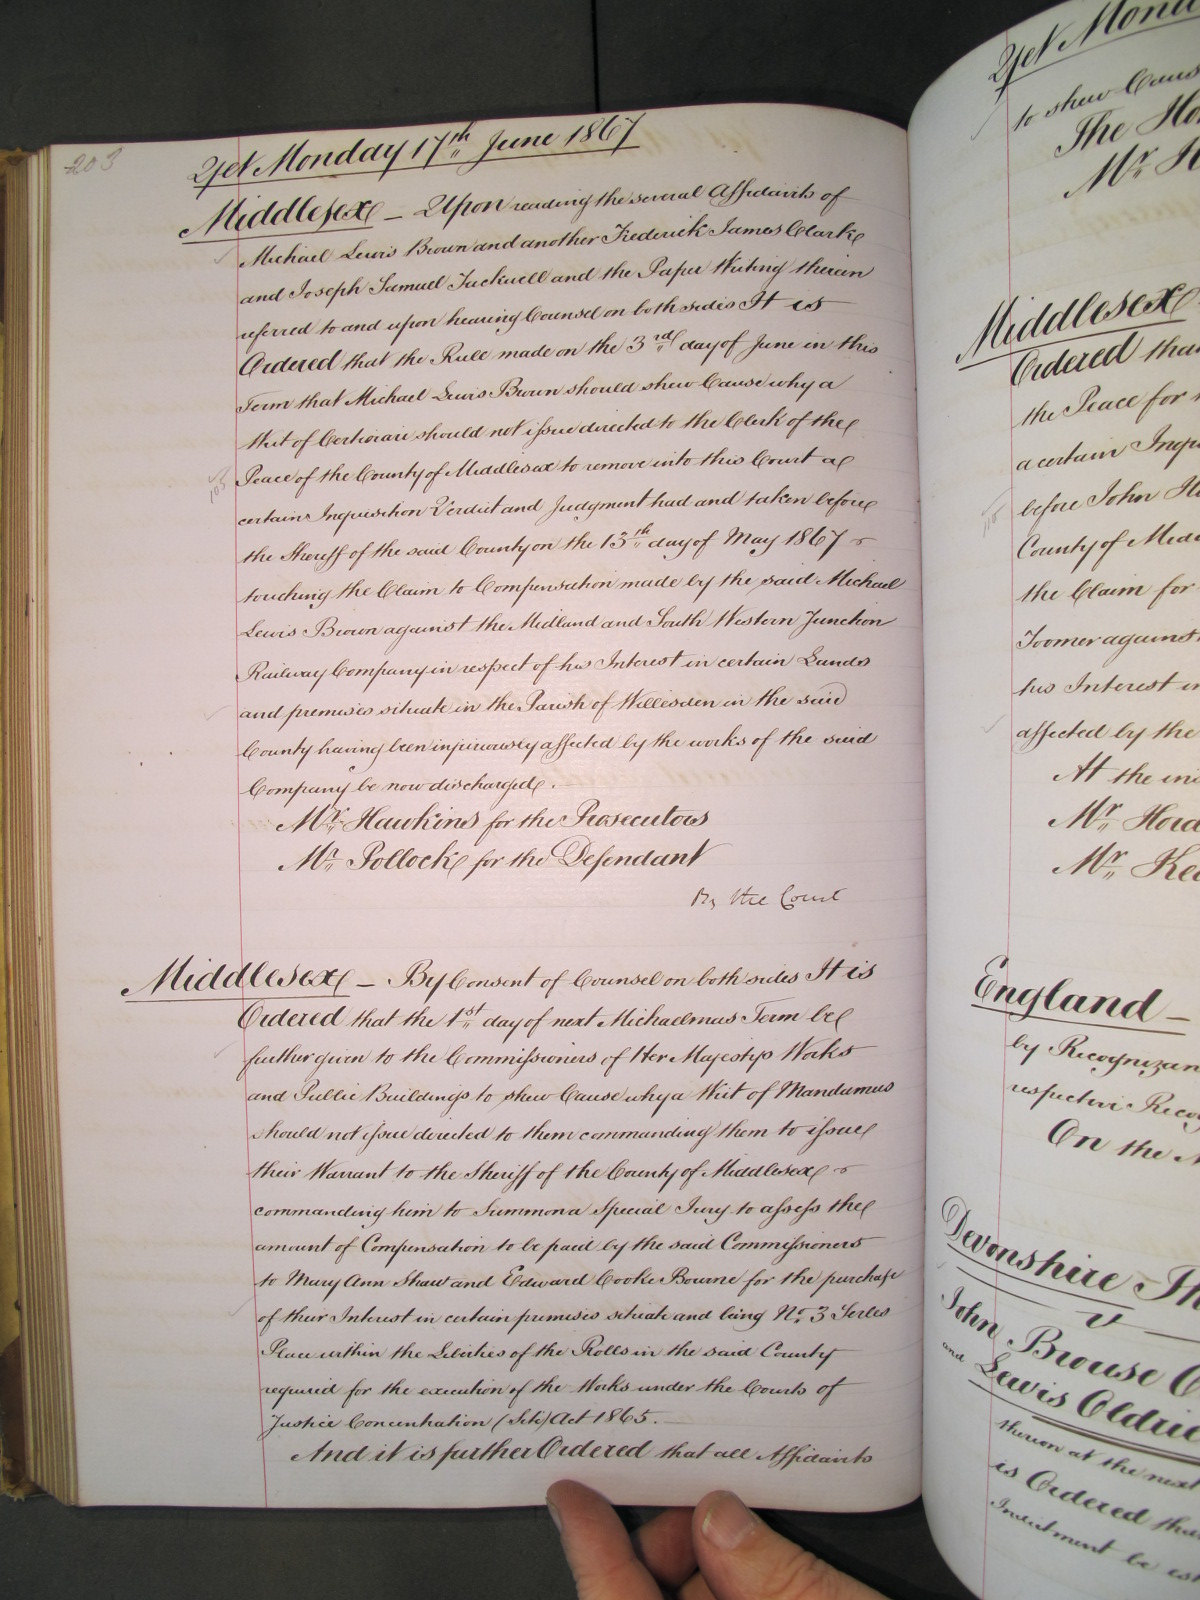 203
Yet Monday 17th June 1867
Middlesex – Upon reading the several Affidavits of
Michael Lewis Brown and another Frederick James Clarke
and Joseph Samuel Tuckwell and the Paper Writing therein
referred to and upon hearing Counsel on both sides It is
Ordered that the Rule made on the 3rd day of June in this
Term that Michael Lewis Brown should shew Cause why a
Writ of Certiorari should not issue directed to the Clerk of the
Peace of the County of Middlesex to remove into this Court a
certain Inquisition Verdict and Judgment had and taken before
the Sheriff of the said County on the 13th day of May 1867
touching the Claim to Compensation made by the said Michael
Lewis Brown against the Midland and South Western Junction
Railway Company in respect of his Interest in certain Lands
and premises situate in the Parish of Willesden in the said
County having been injuriously affected by the works of the said
Company be now discharged.
Mr. Hawkins for the Prosecutors
Mr. Pollock for the Defendant
By the Court
Middlesex – By Consent of Counsel on both sides It is
Ordered that the 1st day of next Michaelmas Term be
further given to the Commissioners of Her Majestys Works
and Public Buildings to shew Cause why a Writ of Mandamus
should not issue directed to them commanding them to issue
their Warrant to the Sheriff of the County of Middlesex
commanding him to Summon a Special Jury to assess the
amount of Compensation to be paid by the said Commissioners
to Mary Ann Shaw and Edward Cooke Bourne for the purchase
of their Interest in certain premises situate and being No. 3 Serles
Place within the Liberties of the Rolls in the said County
required for the execution of the Works under the Courts of
Justice Concentration (Site) Act 1865.
And it is further Ordered that all Affidavits
Yet Mond
to shew Caus
The Ho
Mr. H
Middlesex
Ordered tha
the Peace for
a certain Inqu
before John
County of Midd
the Claim for
Toomer against
his Interest in
affected by the
At the in
Mr.
Mr.
England –
by Recognizan
respective Recog
On the
Devonshire Th
v
John Brouse
and Lewis Oldri
thereon at the next
is Ordered tha
Indictment be